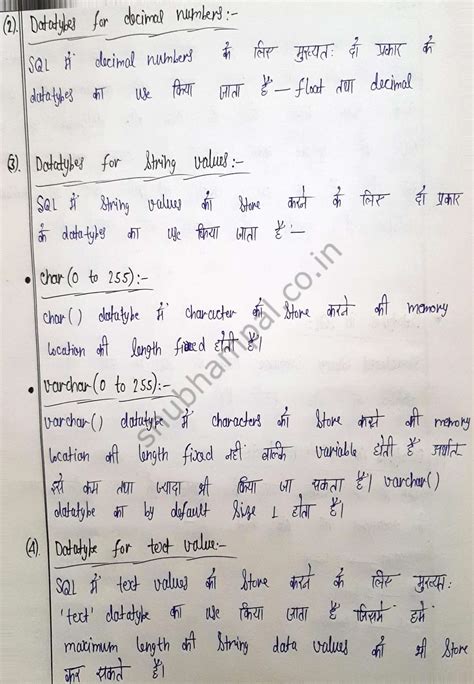 (2). Datatypes for decimal numbers:-
SQL में decimal numbers के लिए मुख्यतः दो प्रकार के
datatypes का use किया जाता है — float तथा decimal
(3). Datatypes for String values:-
SQL में String values को Store करने के लिए दो प्रकार
के datatypes का use किया जाता है:-
• char(0 to 255):-
char() datatype में character को Store करने की memory
location की length fixed होती है।
• varchar(0 to 255):-
varchar() datatype में characters को Store करने की memory
location की length fixed नहीं बल्कि variable होती है अर्थात
इसे कम तथा ज्यादा भी किया जा सकता है। varchar()
datatype का by default Size 1 होता है।
(4). Datatype for text value:-
SQL में text values को Store करने के लिए मुख्यतः
'text' datatype का use किया जाता है जिसमें हमें
maximum length की String data values को भी Store
कर सकते है।
shubhampal.co.in